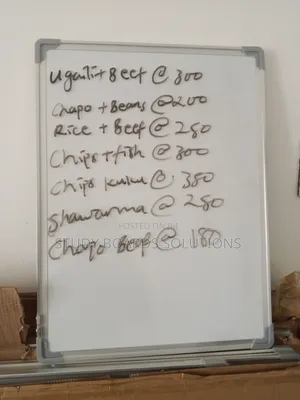 Ugali + Beef @ 300
Chapo + Beans @ 200
Rice + Beef @ 250
Chips + fish @ 300
Chips kuku @ 350
Shawarma @ 250
HOSTED ON
STUDY BOARDS SOLUTIONS
Chapo Beef @ 180